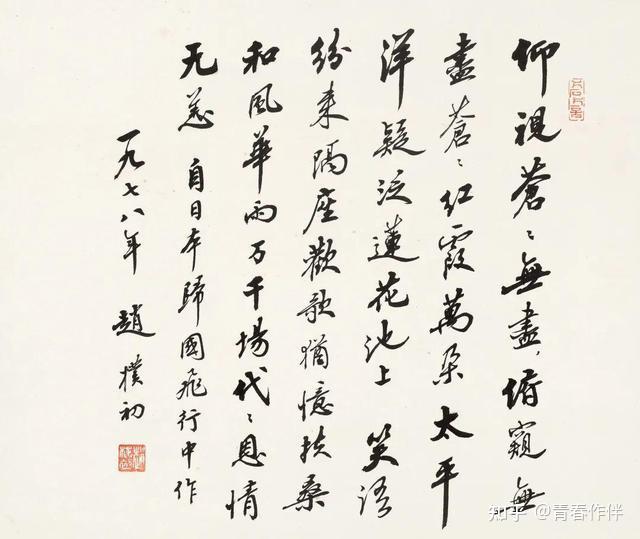 仰視蒼〻無盡，俯窺無
盡蒼〻紅霞萬朵太平
洋疑泛蓮花池上 笑語
紛来隔座歡歌猶憶扶桑
和風華雨万千場代〻恩情
无恙 自日本歸國飛行中作
一九七八年 趙樸初
知乎 @青春作伴